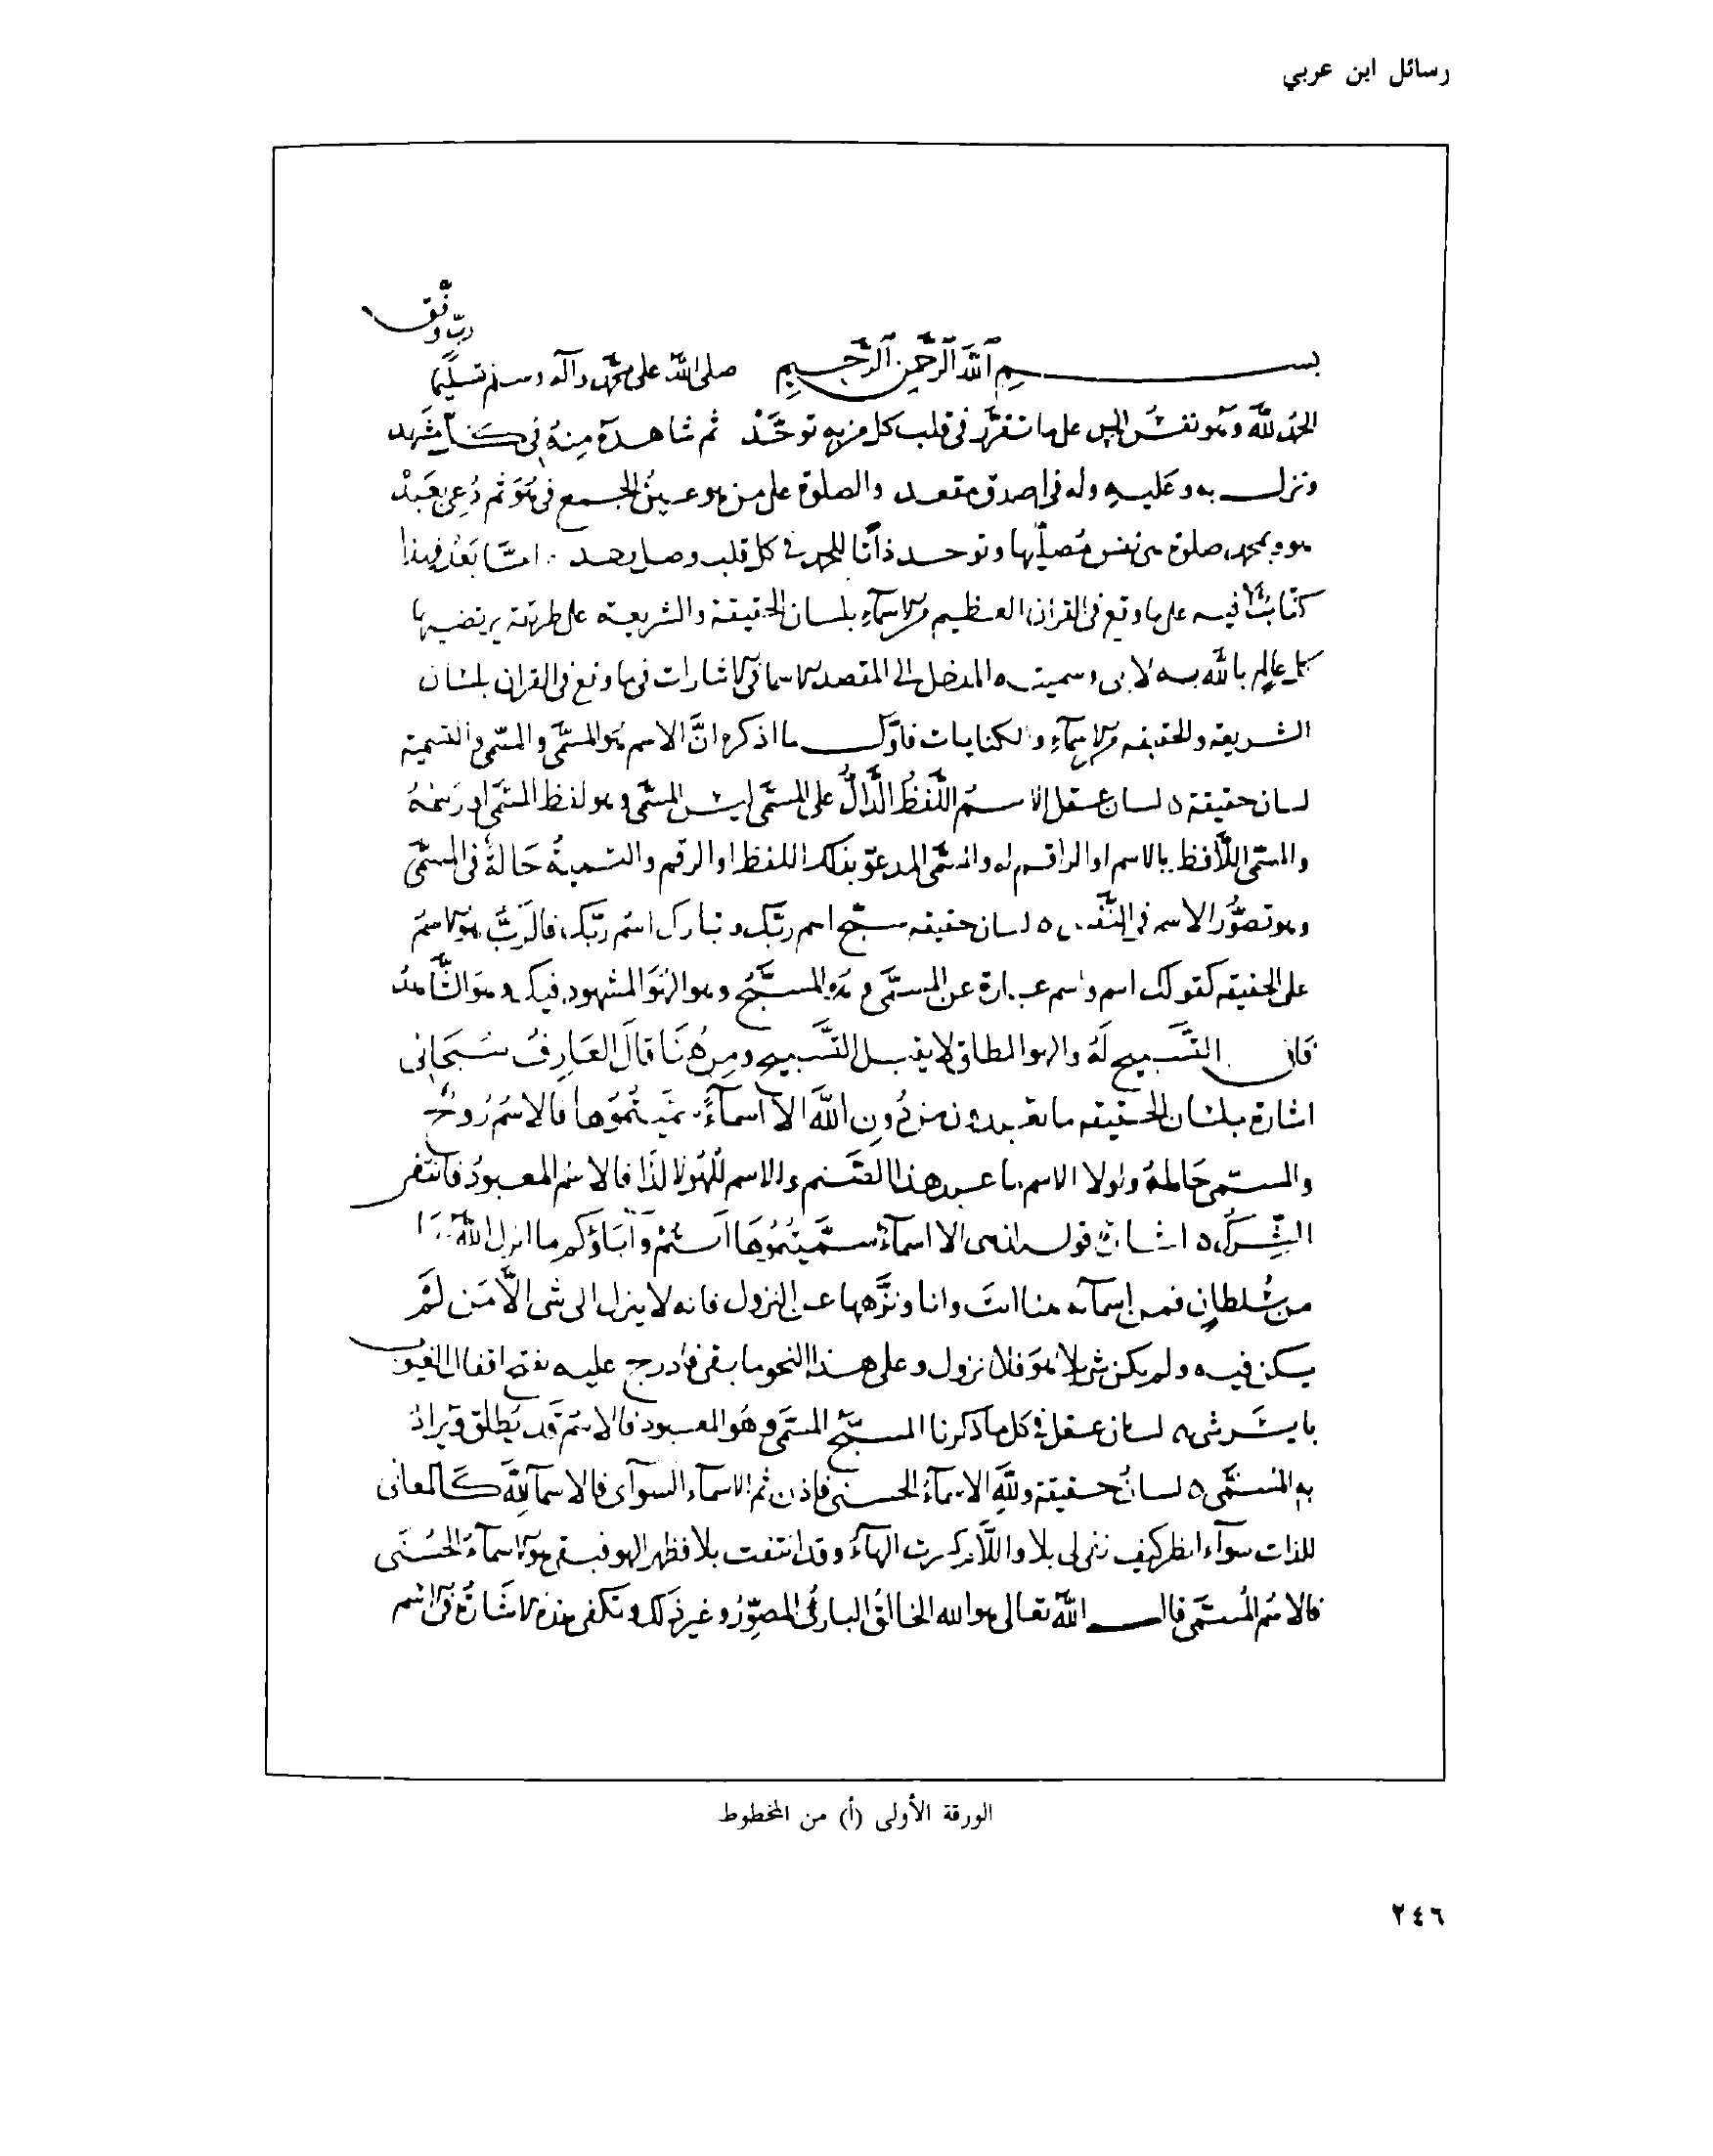 رسائل ابن عربي
ربّ وفّق
بسم ٱللّه ٱلرّحمن ٱلرّحيم صلى اللّه على محمّد وآله وسلم تسليما
الحمد للّه وهو نفس الحمد على ما تقرّر في قلب كل من به توحّد ثم شاهده منه في
ونزل به وعليه وله في اصدق مقعد والصلوة على من هو عين الجمع في هو ثم دعي بعبد
هو وبمحمد صلوة من نفس مصلّيها وتوحد ذاتا للحمد في كل قلب وصل بعد امّا بعد فهذا
كتاب فيه على ما وقع في القران العظيم من الاسمآء بلسان الحقيقة والشريعة على طريقة يرتضيها
كل عالم باللّه به لا بي وسميته المدخل الى المقصد الاسما في الاشارات فيما وقع في القران بلسان
الشريعة والحقيقه من الاسمآء والكنايات فاوّل ما اذكره انّ الاسم هو المسمّى والمسمّي والتسمية
لسان حقيقة ٥ لسان عقل الاسم اللّفظ الدّالّ على المسمّى ليس المسمّى وهو لفظ المسمّي او رسمه
والمسمّي اللّافظ بالاسم او الراقم له والمسمّى المدعوّ بذلك اللفظ او الرقم والتسمية حالة في المسمّي
وهو تصوّر الاسم في النّفس ٥ لسان حقيقه سبّح اسم ربّك وتبارك اسم ربّك فالربّ هو الاسم
على الحقيقه كقولك اسم واسم عبارة عن المسمّى وهو المسبّح وهو الهو المشهود فيك وهو الشّاهد
فان التّسبيح له والهو المطلق لا يقبل التّسبيح ومن هنا قال العارف سبحاني
اشارة بلسان الحقيقه ما تعبدون من دون اللّه الّا اسمآء سمّيتموها فالاسم روح
والمسمّى حامله ولولا الاسم ما عبد هذا الصّنم والاسم للهو لا لذا فالاسم المعبود فانتفى
الشّرك ٥ اشارة قوله ان هي الا اسمآء سمّيتموها انتم وآباؤكم ما انزل اللّه بها
من سلطان فمن اسمآئه هنا انت وانا ونزّهها عن النزول فانه لا ينزل الى شي الّا من لم
يكن فيه ولم يكن شي الا هو فلا نزول وعلى هذا النحو ما بقي فادرج عليه تفتح اقفال الغيوب
بايسر شي لسان عقل في كل ما ذكرنا المسبّح المسمّى وهو المعبود فالاسم قد يطلق ويراد
به المسمّى ٥ لسان حقيقة وللّه الاسمآء الحسنى فاذن ثم الاسمآء السوآى فالاسمآ للّه كالمعاني
للذات سوآء انظر كيف نفي لي بلا واللّام كسرت الهآء وقد انتفت بلا فظهر الهو فبقي هو الاسمآء الحسنى
فالاسم المسمّى قال اللّه تعالى هو الله الخالق البارئ المصوّر وغير ذلك وتكفي هذه الاشارة في الاسم
الورقة الأولى (أ) من المخطوط
٢٤٦